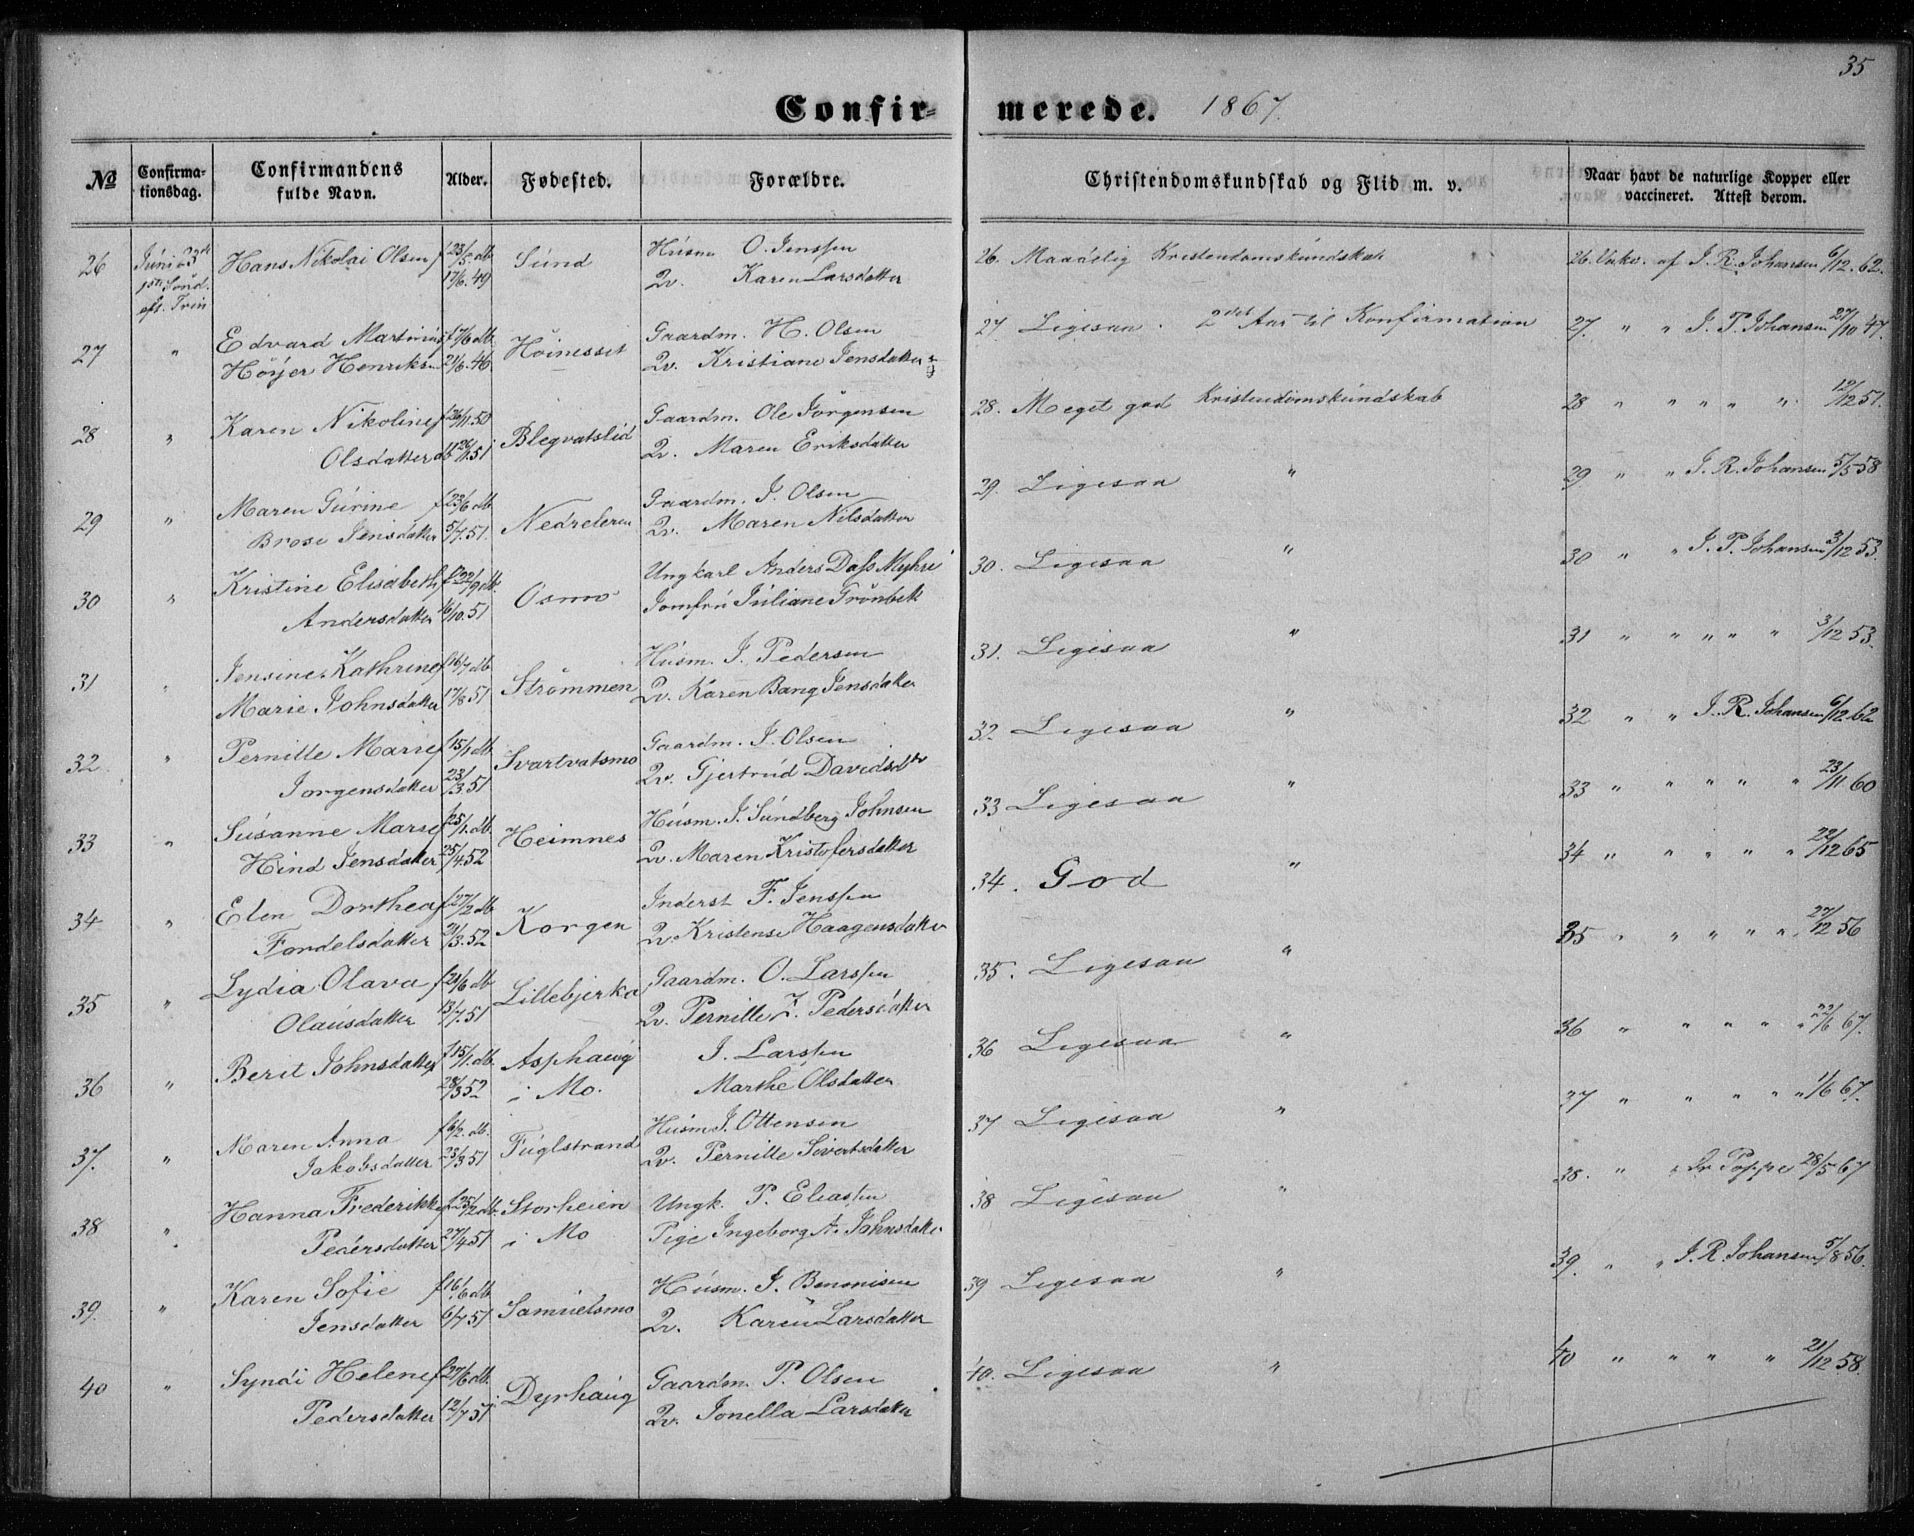 35
Confirmerede. 1867.
No Confirmationsdag. Confirmandens fulde Navn. Alder. Fødested. Forældre. Christendomskundskab og Flid m. v. Naar havt de naturlige Kopper eller vaccineret. Attest derom.
26 Juni 1ste Sønd. eft. Trin Hans Nikolai Olsen f 23/5 db 17/6.49 Sund Husm O. Jenssen Qv. Karen Larsdatter 26. Maadelig Kristendomskundskab 26. Vakc. af J. R. Johansen 6/12.62.
27 " Edvard Martinus Höyer Henriksen f 7/6 db. 21/6.46 Höinesset Gaardm. H. Olsen Qv. Kristiane Jensdatter 27 Ligesaa. 2det Aar til Konfirmation 27. " " J. P. Johansen 27/10 47.
28 " Karen Nikoline Olsdatter f 26/11.50 db 26/1.51 Blegvatslid Gaardm. Ole Jörgensen Qv. Maren Eriksdatter 28. Meget god Kristendomskundskab 28 " " " " " 12/12 51.
29 " Maren Gurine Brose Jensdatter f 23/6 db 5/7.51. Nedreleren Gaardm. J. Olsen Qv. Maren Nilsdatter 29. Ligesaa " 29 " " J. R. Johansen 5/5 58
30 " Kristine Elisabeth Andersdatter f 22/9 db. 6/10.51 Osmo Ungkarl Anders Dass Myhre Jomfru Juliane Grönbek 30. Ligesaa " 30 " " J. P. Johansen 3/12 53.
31 " Jensine Kathrine Marie Johnsdatter f 16/7 db 17/8 51 Strömmen Husm. J. Pedersen Qv. Karen Bang Jensdatter 31. Ligesaa " 31 " " " " " 3/12 53.
32 " Pernille Marie Jorgensdatter f 15/1 db. 23/3 51 Svartvatsmo Gaardm. J. Olsen Qv. Gjertrud Davidsdtr 32. Ligesaa " 32 " " J. R. Johansen 6/12 62
33 " Susanne Marie Hind Jensdatter f 25/1. db. 25/4 52 Heimnes Husm. J. Sundberg Johnsen Qv. Maren Kristofersdatter 33 Ligesaa " 33 " " " " " 23/11 60
34 " Elen Dorthea Fordelsdatter f 27/2 db 21/3.52 Korgen Inderst F. Jenssen Qv. Kristense Haagensdatter 34. God " 34 " " " " " 22/12 65
35 " Lydia Olava Olausdatter f 21/6 db 13/7.51 Lillebjerka Gaardm. O. Larssen Qv. Pernille Z. Pedersdatter 35. Ligesaa " 35 " " " " " 27/12 56
36 " Berit Johnsdatter f 15/1. db. 28/3 52 Asphaug i Mo. J. Larssen Marthe Olsdatter 36 Ligesaa " 36 " " " " " 22/6 67.
37. " Maren Anna Jakobsdatter f 6/2. db. 23/3 51 Fuglstrand Husm J. Ottensen Qv. Pernille Sivertsdatter 37 Ligesaa " 37 " " " " " 1/6 67.
38 " Hanna Frederikke Pedersdatter f 25/2 db. 27/4 51 Storheien i Mo Ungk. P. Eliassen Pige Ingeborg A. Johnsdatter 38 Ligesaa " 38. " " Dr Poppe 28/5 67
39. " Karen Sofie Jensdatter f 16/6 db 6/7 51 Samuelsmo Husm. J. Benonisen Qv. Karen Larsdatter 39 Ligesaa " 39. " " J. R. Johansen 5/8 56.
40 " Syndi Helene Pedersdatter f 27/6 db. 12/7 51 Dyrhaug Gaardm. P. Olsen Qv. Jonella Larsdatter 40. Ligesaa " 40 " " " " 21/12 58.